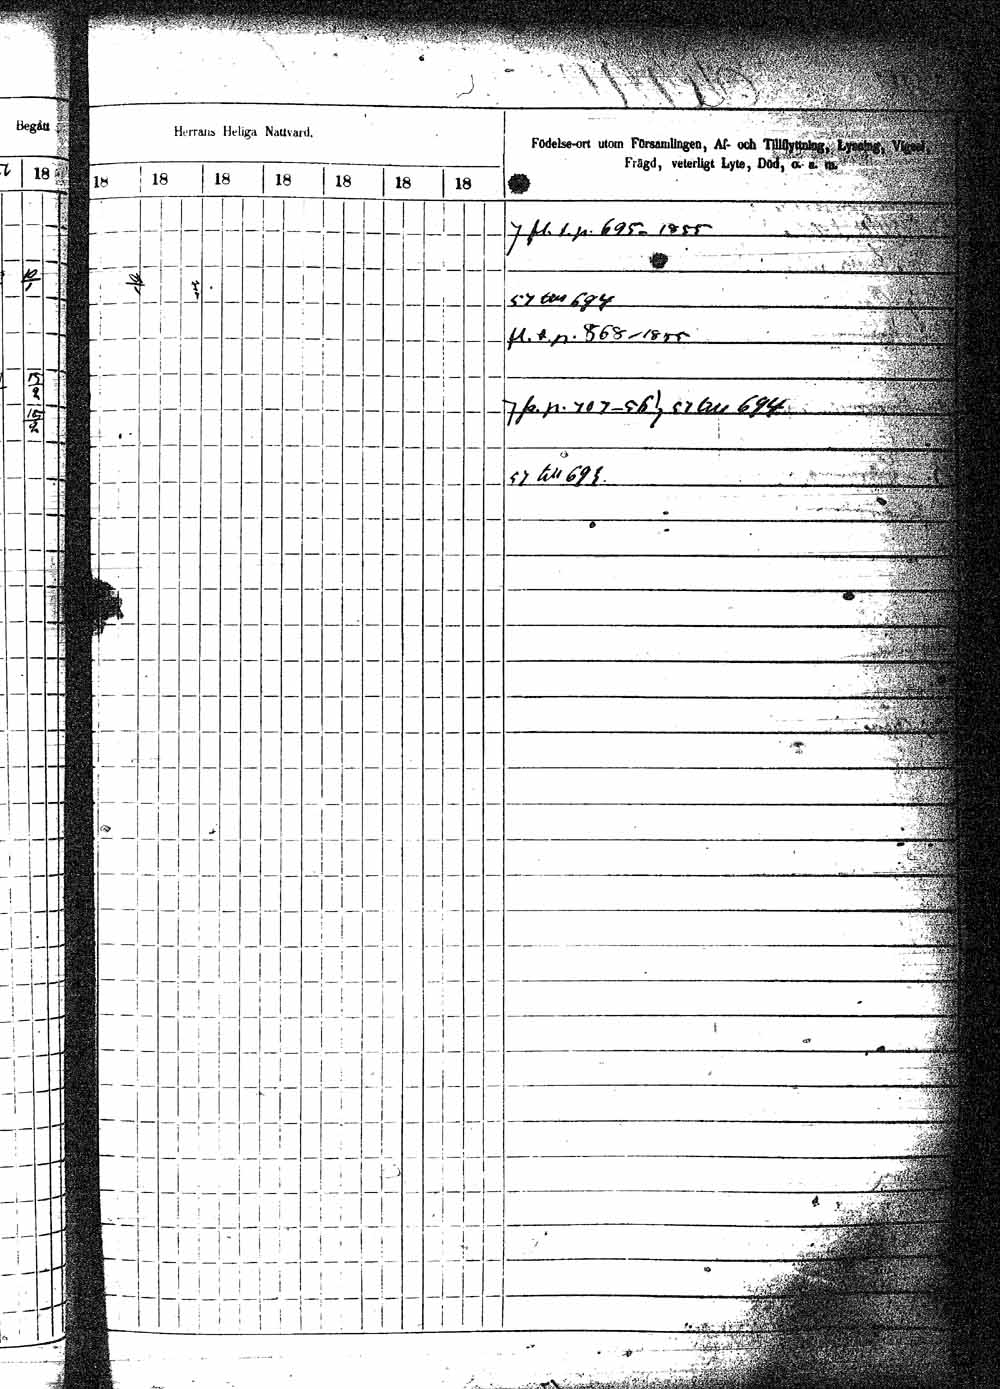 Begått
Herrans Heliga Nattvard.
Födelse-ort utom Församlingen, Af- och Tillflyttning, Lysning, Vigsel,
Frägd, veterligt Lyte, Död, o. s. m.
18 18 18 18 18 18 18 18
fl. t. p. 695 - 1855
57 till 694
fl. t. p. 868 - 1855
15/2
p. 707-56, 57 till 694
15/2
57 till 693.